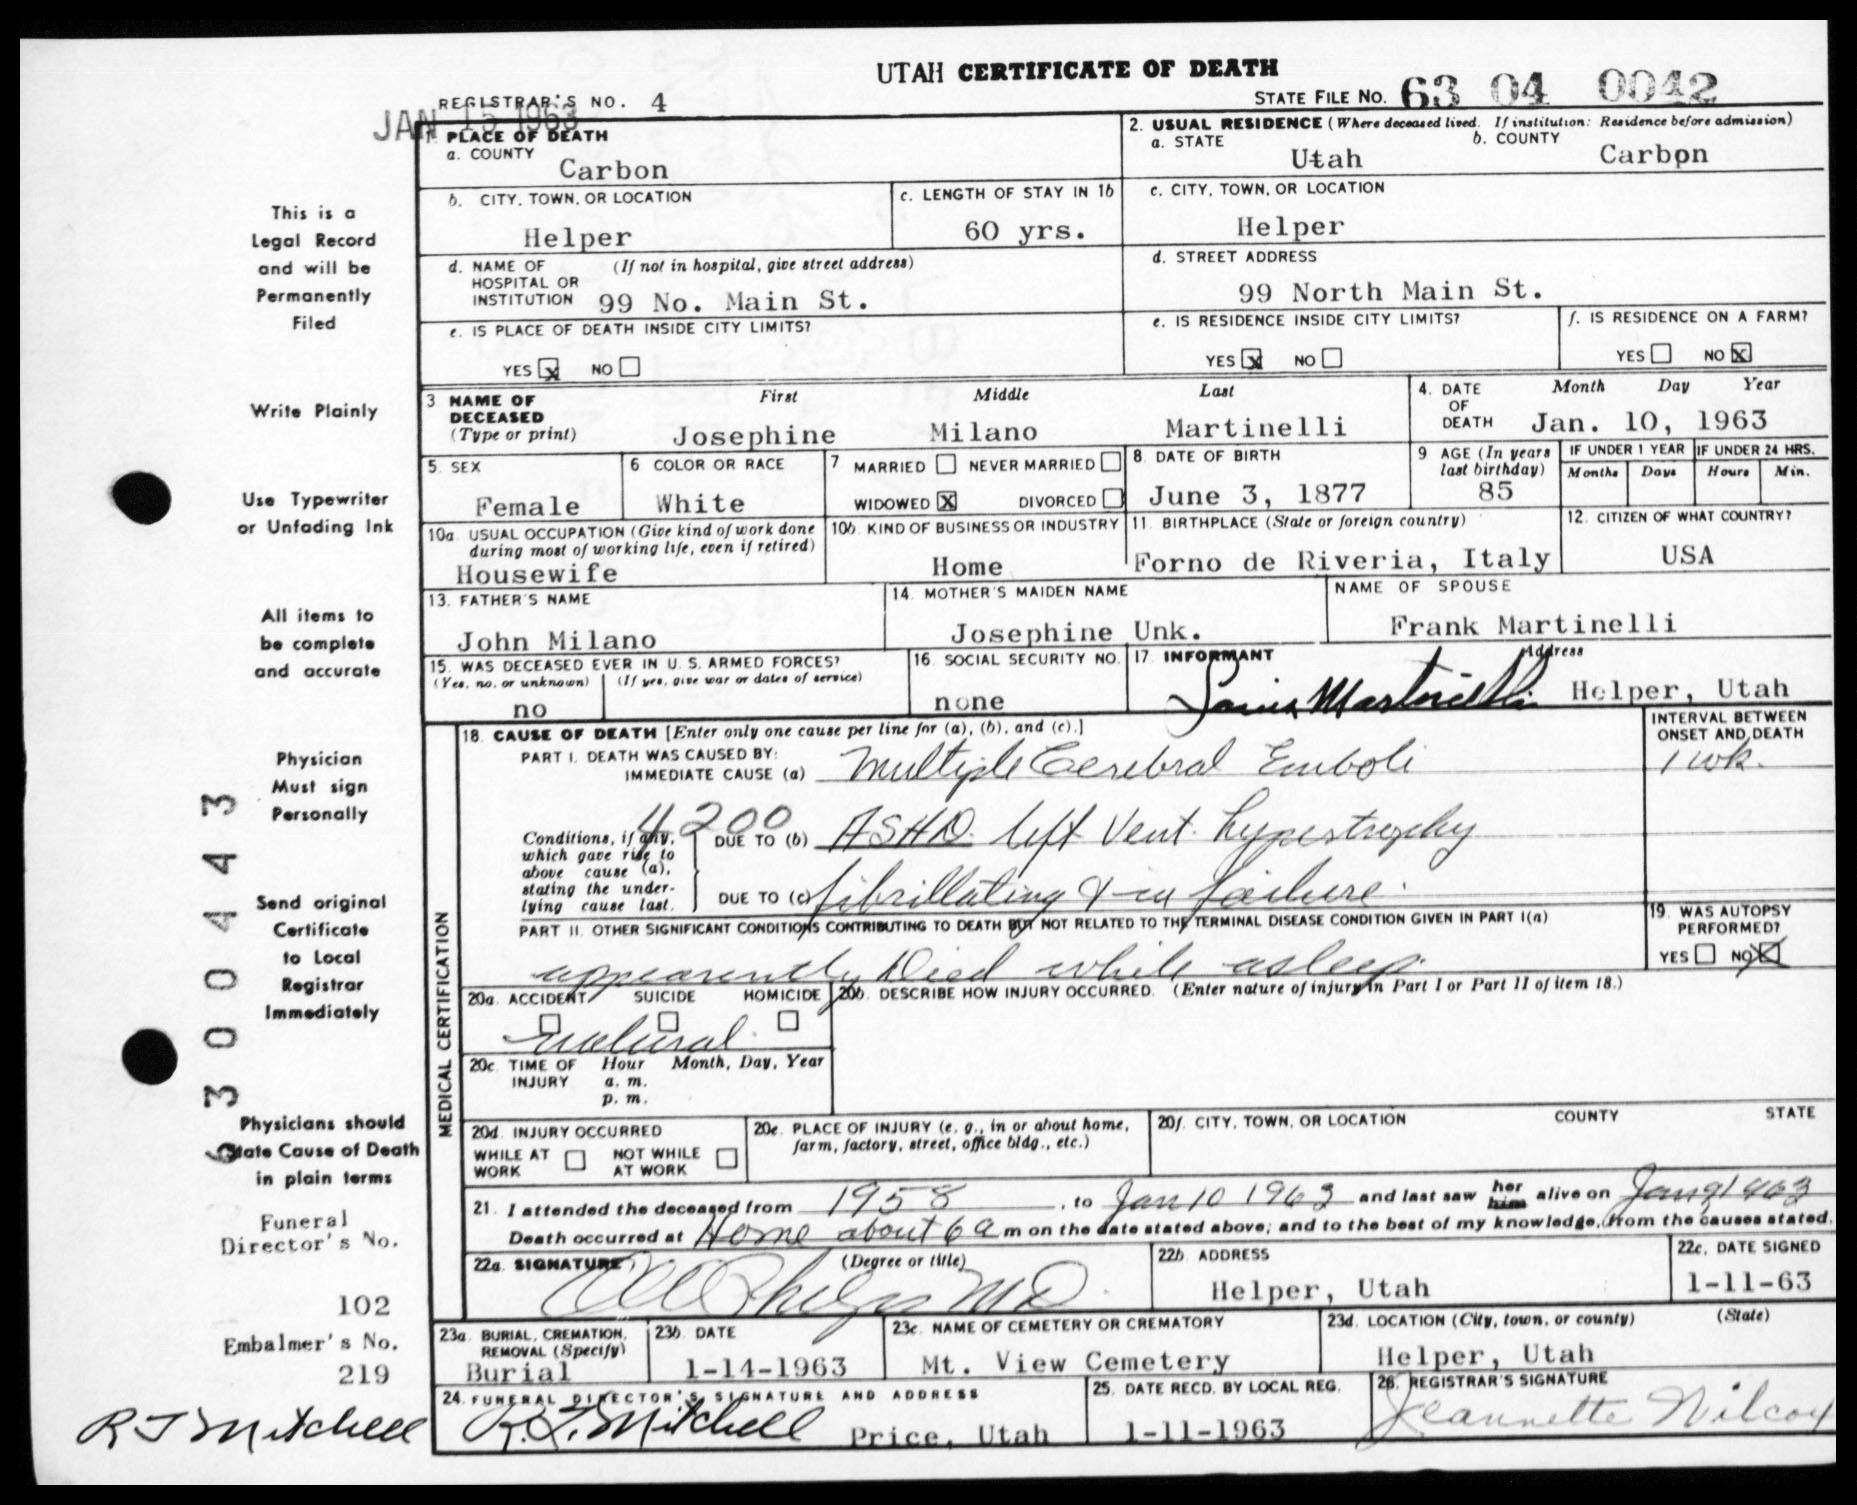 UTAH CERTIFICATE OF DEATH
REGISTRAR'S NO. 4
STATE FILE NO. 63 04 0042
JAN 15 1963
1. PLACE OF DEATH
a. COUNTY
Carbon
2. USUAL RESIDENCE (Where deceased lived. If institution: Residence before admission)
a. STATE
Utah
b. COUNTY
Carbon
b. CITY, TOWN, OR LOCATION
Helper
c. LENGTH OF STAY IN 1b
60 yrs.
c. CITY, TOWN, OR LOCATION
Helper
d. NAME OF HOSPITAL OR INSTITUTION
(If not in hospital, give street address)
99 No. Main St.
d. STREET ADDRESS
99 North Main St.
e. IS PLACE OF DEATH INSIDE CITY LIMITS?
YES X NO
e. IS RESIDENCE INSIDE CITY LIMITS?
YES X NO
f. IS RESIDENCE ON A FARM?
YES NO X
3 NAME OF DECEASED
(Type or print)
First Middle Last
Josephine Milano Martinelli
4. DATE OF DEATH
Month Day Year
Jan. 10, 1963
5. SEX
Female
6 COLOR OR RACE
White
7 MARRIED NEVER MARRIED
WIDOWED X DIVORCED
8. DATE OF BIRTH
June 3, 1877
9 AGE (In years last birthday)
85
IF UNDER 1 YEAR
Months Days
IF UNDER 24 HRS.
Hours Min.
10a. USUAL OCCUPATION (Give kind of work done during most of working life, even if retired)
Housewife
10b. KIND OF BUSINESS OR INDUSTRY
Home
11. BIRTHPLACE (State or foreign country)
Forno de Riveria, Italy
12. CITIZEN OF WHAT COUNTRY?
USA
13. FATHER'S NAME
John Milano
14. MOTHER'S MAIDEN NAME
Josephine Unk.
NAME OF SPOUSE
Frank Martinelli
15. WAS DECEASED EVER IN U. S. ARMED FORCES?
(Yes, no, or unknown) (If yes, give war or dates of service)
no
16. SOCIAL SECURITY NO.
none
17. INFORMANT
Martinelli
Address
Helper, Utah
MEDICAL CERTIFICATION
18. CAUSE OF DEATH [Enter only one cause per line for (a), (b), and (c).]
INTERVAL BETWEEN ONSET AND DEATH
PART I. DEATH WAS CAUSED BY:
IMMEDIATE CAUSE (a) Multiple Cerebral Emboli
1 wk.
4200
Conditions, if any, which gave rise to above cause (a), stating the underlying cause last.
DUE TO (b) ASHD. left Vent. hypertrophy
DUE TO (c) fibrillating & in failure.
PART II. OTHER SIGNIFICANT CONDITIONS CONTRIBUTING TO DEATH BUT NOT RELATED TO THE TERMINAL DISEASE CONDITION GIVEN IN PART I(a)
apparently Died while asleep.
19. WAS AUTOPSY PERFORMED?
YES NO X
20a. ACCIDENT SUICIDE HOMICIDE
natural.
20b. DESCRIBE HOW INJURY OCCURRED. (Enter nature of injury in Part I or Part II of item 18.)
20c. TIME OF INJURY
Hour Month, Day, Year
a. m.
p. m.
20d. INJURY OCCURRED
WHILE AT WORK NOT WHILE AT WORK
20e. PLACE OF INJURY (e. g., in or about home, farm, factory, street, office bldg., etc.)
20f. CITY, TOWN, OR LOCATION COUNTY STATE
21. I attended the deceased from 1958, to Jan 10 1963 and last saw her him alive on Jan 9 1963
Death occurred at Home about 6 a m on the date stated above; and to the best of my knowledge, from the causes stated.
22a. SIGNATURE (Degree or title)
Phelps MD.
22b ADDRESS
Helper, Utah
22c. DATE SIGNED
1-11-63
23a. BURIAL, CREMATION, REMOVAL (Specify)
Burial
23b. DATE
1-14-1963
23c. NAME OF CEMETERY OR CREMATORY
Mt. View Cemetery
23d. LOCATION (City, town, or county) (State)
Helper, Utah
24. FUNERAL DIRECTOR'S SIGNATURE AND ADDRESS
R. J. Mitchell Price, Utah
25. DATE RECD. BY LOCAL REG.
1-11-1963
26. REGISTRAR'S SIGNATURE
Jeannette Wilcox
This is a
Legal Record
and will be
Permanently
Filed
Write Plainly
Use Typewriter
or Unfading Ink
All items to
be complete
and accurate
Physician
Must sign
Personally
Send original
Certificate
to Local
Registrar
Immediately
Physicians should
State Cause of Death
in plain terms
Funeral
Director's No.
102
Embalmer's No.
219
R J Mitchell
300443